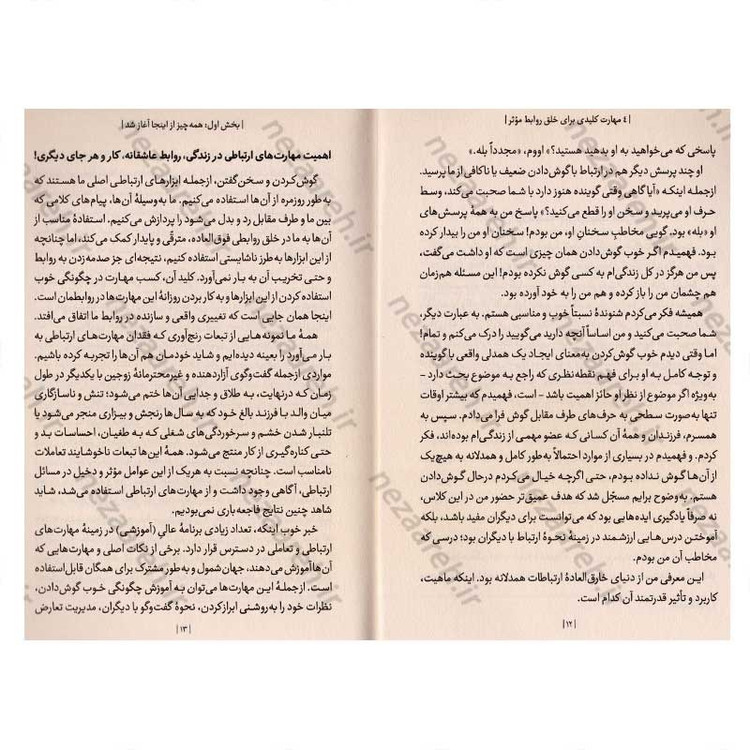 | ۴ مهارت کلیدی برای خلق روابط مؤثر |
پاسخی که می‌خواهید به او بدهید هستید؟» اووم، «مجدداً بله.»
او چند پرسش دیگر هم در ارتباط با گوش‌دادن ضعیف یا ناکافی از ما پرسید.
ازجمله اینکه «آیا گاهی وقتی گوینده هنوز دارد با شما صحبت می‌کند، وسط
حرف او می‌پرید و سخن او را قطع می‌کنید؟» پاسخ من به همهٔ پرسش‌های
او «بله» بود. گویی مخاطبِ سخنانِ او، من بودم! سخنان او من را بیدار کرده
بود. فهمیدم اگر خوب گوش‌دادن همان چیزی است که او داشت می‌گفت،
پس من هرگز در کل زندگی‌ام به کسی گوش نکرده بودم! این مسئله هم‌زمان
هم چشمان من را باز کرده و هم من را به خود آورده بود.
همیشه فکر می‌کردم شنوندهٔ نسبتاً خوب و مناسبی هستم، به عبارت دیگر،
شما صحبت می‌کنید و من اساساً آنچه دارید می‌گویید را درک می‌کنم و تمام!
اما وقتی دیدم خوب گوش‌کردن به‌معنای ایجاد یک همدلی واقعی با گوینده
و توجه کامل به او برای فهم نقطه‌نظری که راجع به موضوع بحث دارد -
به‌ویژه اگر موضوع از نظر او حائز اهمیت باشد - است، فهمیدم که بیشتر اوقات
تنها به‌صورت سطحی به حرف‌های طرف مقابل گوش فرامی‌دادم. سپس به
همسرم، فرزندان و همهٔ آن کسانی که عضو مهمی از زندگی‌ام بوده‌اند، فکر
کردم و فهمیدم در بسیاری از موارد احتمالاً به‌طور کامل و همدلانه به هیچ‌یک
از آن‌ها گوش نداده بودم، حتی اگرچه خیال می‌کردم درحال گوش‌دادن
هستم. به‌وضوح برایم مسجّل شد که هدف عمیق‌تر حضور من در این کلاس،
نه صرفاً یادگیری ایده‌هایی بود که می‌توانست برای دیگران مفید باشد، بلکه
آموختن درس‌هایی ارزشمند در زمینهٔ نحوهٔ ارتباط با دیگران بود؛ درسی که
مخاطب آن من بودم.
این معرفی من از دنیای خارق‌العادهٔ ارتباطات همدلانه بود. اینکه ماهیت،
کاربرد و تأثیر قدرتمند آن کدام است.
| ۱۲ |
| بخش اول: همه چیز از اینجا آغاز شد |
اهمیت مهارت‌های ارتباطی در زندگی، روابط عاشقانه، کار و هر جای دیگری!
گوش‌کردن و سخن‌گفتن، ازجمله ابزارهای ارتباطی اصلی ما هستند که
به‌طور روزمره از آن‌ها استفاده می‌کنیم. ما به‌وسیلهٔ آن‌ها، پیام‌های کلامی که
بین ما و طرف مقابل رد و بدل می‌شود را پردازش می‌کنیم. استفادهٔ مناسب از
آن‌ها به ما در خلق روابطی فوق‌العاده، مترقّی و پایدار کمک می‌کند، اما چنانچه
از این ابزارها به‌طرز ناشایستی استفاده کنیم، نتیجه‌ای جز صدمه‌زدن به روابط
و حتی تخریب آن به بار نمی‌آورد. کلید آن، کسب مهارت در چگونگی خوب
استفاده کردن از این ابزارها و به کار بردن روزانهٔ این مهارت‌ها در روابطمان است.
اینجا همان جایی است که تغییری واقعی و سازنده در روابط ما اتفاق می‌افتد.
همهٔ ما نمونه‌هایی از تبعات رنج‌آوری که فقدان مهارت‌های ارتباطی به
بار می‌آورد را بعینه دیده‌ایم و شاید خودمان هم آن‌ها را تجربه کرده باشیم.
مواردی ازجمله گفت‌وگوی آزاردهنده و غیرمحترمانهٔ زوجین با یکدیگر در طول
زمان که درنهایت، به طلاق و جدایی آن‌ها ختم می‌شود؛ تنش و ناسازگاری
میان والد با فرزند بالغ خود که به سال‌ها رنجش و بیزاری منجر می‌شود یا
تلنبار شدن خشم و سرخوردگی‌های شغلی که به طغیان، احساسات بد و
حتی کناره‌گیری از کار منتج می‌شود. همهٔ این‌ها تبعات ناخوشایند تعاملات
نامناسب است. چنانچه نسبت به هریک از این عوامل مؤثر و دخیل در مسائل
ارتباطی، آگاهی وجود داشت و از مهارت‌های ارتباطی استفاده می‌شد، شاید
شاهد چنین نتایج فاجعه‌باری نمی‌بودیم.
خبر خوب اینکه، تعداد زیادی برنامهٔ عالیِ (آموزشی) در زمینهٔ مهارت‌های
ارتباطی و تعاملی در دسترس قرار دارد. برخی از نکات اصلی و مهارت‌هایی که
آن‌ها آموزش می‌دهند، جهان‌شمول و به‌طور مشترک برای همگان قابل استفاده
است. ازجملهٔ این مهارت‌ها می‌توان به آموزش چگونگی خوب گوش‌دادن،
نظرات خود را به‌روشنی ابرازکردن، نحوهٔ گفت‌وگو با دیگران، مدیریت تعارض
| ۱۳ |
nezaareh.ir